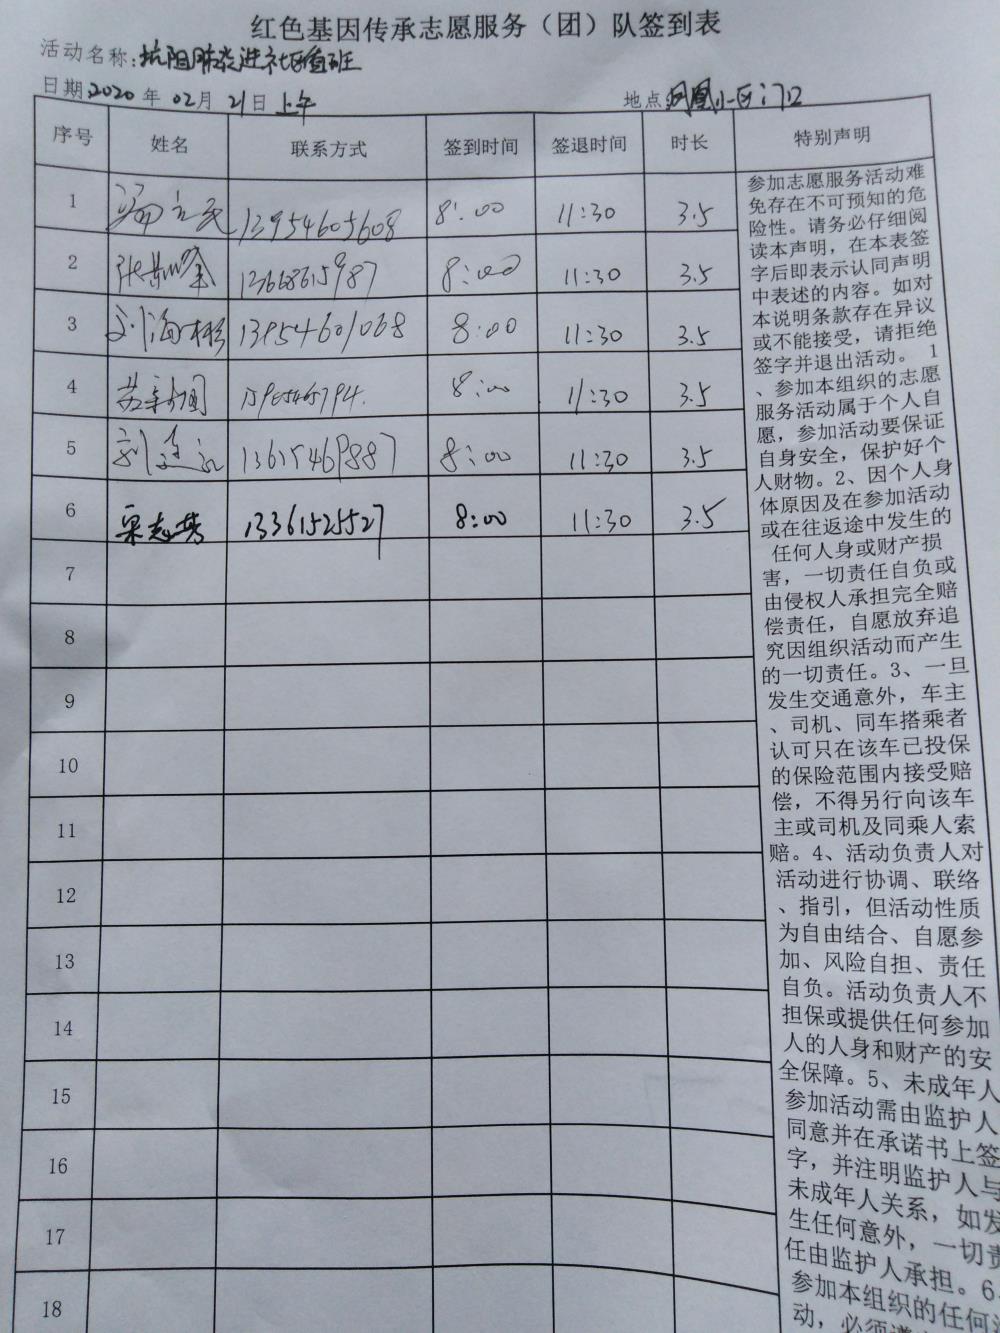 红色基因传承志愿服务（团）队签到表
活动名称：抗阻肺炎进社区值班
日期2020年02月21日上午 地点凤凰小区门口
序号 姓名 联系方式 签到时间 签退时间 时长 特别声明
1 13954605608 8:00 11:30 3.5
2 13668615987 8:00 11:30 3.5
3 刘海彬 13954601068 8:00 11:30 3.5
4 苏新国 8:00 11:30 3.5
5 13615469887 8:00 11:30 3.5
6 梁志芳 13361525527 8:00 11:30 3.5
7
8
9
10
11
12
13
14
15
16
17
18
参加志愿服务活动难
免存在不可预知的危
险性。请务必仔细阅
读本声明，在本表签
字后即表示认同声明
中表述的内容。如对
本说明条款存在异议
或不能接受，请拒绝
签字并退出活动。 1
、参加本组织的志愿
服务活动属于个人自
愿，参加活动要保证
自身安全，保护好个
人财物。2、因个人身
体原因及在参加活动
或在往返途中发生的
任何人身或财产损
害，一切责任自负或
由侵权人承担完全赔
偿责任，自愿放弃追
究因组织活动而产生
的一切责任。3、一旦
发生交通意外，车主
、司机、同车搭乘者
认可只在该车已投保
的保险范围内接受赔
偿，不得另行向该车
主或司机及同乘人索
赔。4、活动负责人对
活动进行协调、联络
、指引，但活动性质
为自由结合、自愿参
加、风险自担、责任
自负。活动负责人不
担保或提供任何参加
人的人身和财产的安
全保障。5、未成年人
参加活动需由监护人
同意并在承诺书上签
字，并注明监护人与
未成年人关系，如发
生任何意外，一切责
任由监护人承担。6、
参加本组织的任何活
动，必须